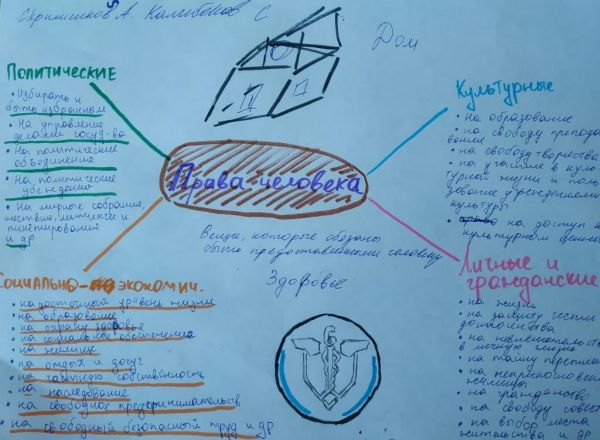 Калыбеков С
Дом
ПОЛИТИЧЕСКИЕ
• Избирать и
быть избранном
• На управление
делами госуд-ва
• На политические
объединение
• На политические
убеждению
• на мирные собрания,
шествия, митинги и
пикетирования
и др
КУЛЬТУРНЫЕ
• на образование
• на свободу препода
вание
• на свободу творчества
• на участие в куль
турной жизни и поль
зование учреждениями
культуры
на доступ к
культурном ценнос
Права человека
Вещи, которые обязаны
быть предоставлеными человеку
СОЦИАЛЬНО-ЭКОНОМИЧ.
• на достойный уровень жизни
• на образование
• на охрану здоровье
• на социальное обеспечение
• на жилище
• на отдых и досуг
• на частную собственность
• на наследование
• на свободное предпринимательств
• на свободный безопасный труд и др
Здоровье
Личные и
гражданские
• на жизнь
• на защиту чести
достоинства
• на неприкосновен
и личную
• на тайну переписк
• на неприкосновен
жилища
• на гражданство
• на свободу совест
• на выбор места
жительства и др